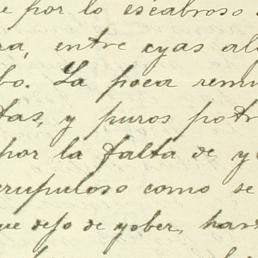 e por lo escabroso
ra, entre cyas al
bo. La poca rem
tas, y puros potr
por la falta de y
crupuloso como se
ue dejo de yober, has